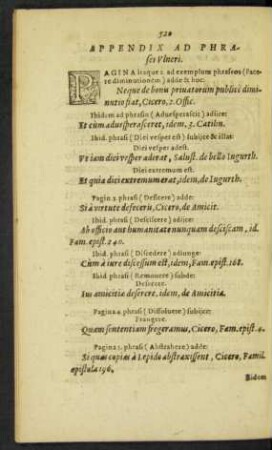 520
APPENDIX AD PHRA-
ses Vlneri.
PAGINA itaque 1. ad exemplum phrasеos (Face-
re diminutionem) adde & huc:
Neque de bonis priuatorum publicè dimi-
nutio fiat, Cicero, 2. Offic.
Ibidem ad phrasin (Aduesperascit) adiice:
Et cùm aduesperasceret, idem, 3. Catilin.
Ibid. phrasi (Diei vesper est) subiice & istat:
Diei vesper adest.
Vt iam diei vesper aderat, Salust. de bello Iugurth.
Diei extremum est.
Et quia diei extremum erat, idem, de Iugurth.
Pagin. 2. phrasi (Desciscere) adde:
Si à virtute defeceris, Cicero, de Amicit.
Ibid. phrasi (Desciscere) adiice:
Ab officio aut humanitate nunquam desciscam, id.
Fam. epist. 240.
Ibid. phrasi (Discedere) adiunge:
Cùm à iure discessum est, idem, Fam. epist. 168.
Ibid. phrasi (Remouere) subde:
Deserere.
Ius amicitiæ deserere, idem, de Amicitia.
Pagina 4. phrasi (Dissoluem) subiice:
Frangere.
Quam sententiam fregeramus, Cicero, Fam. epist. 4.
Pagina 5. phrasi (Abstrahere) adde:
Si quas copias à Lepido abstraxissent, Cicero, Famil.
epistula 196.
Ibidem